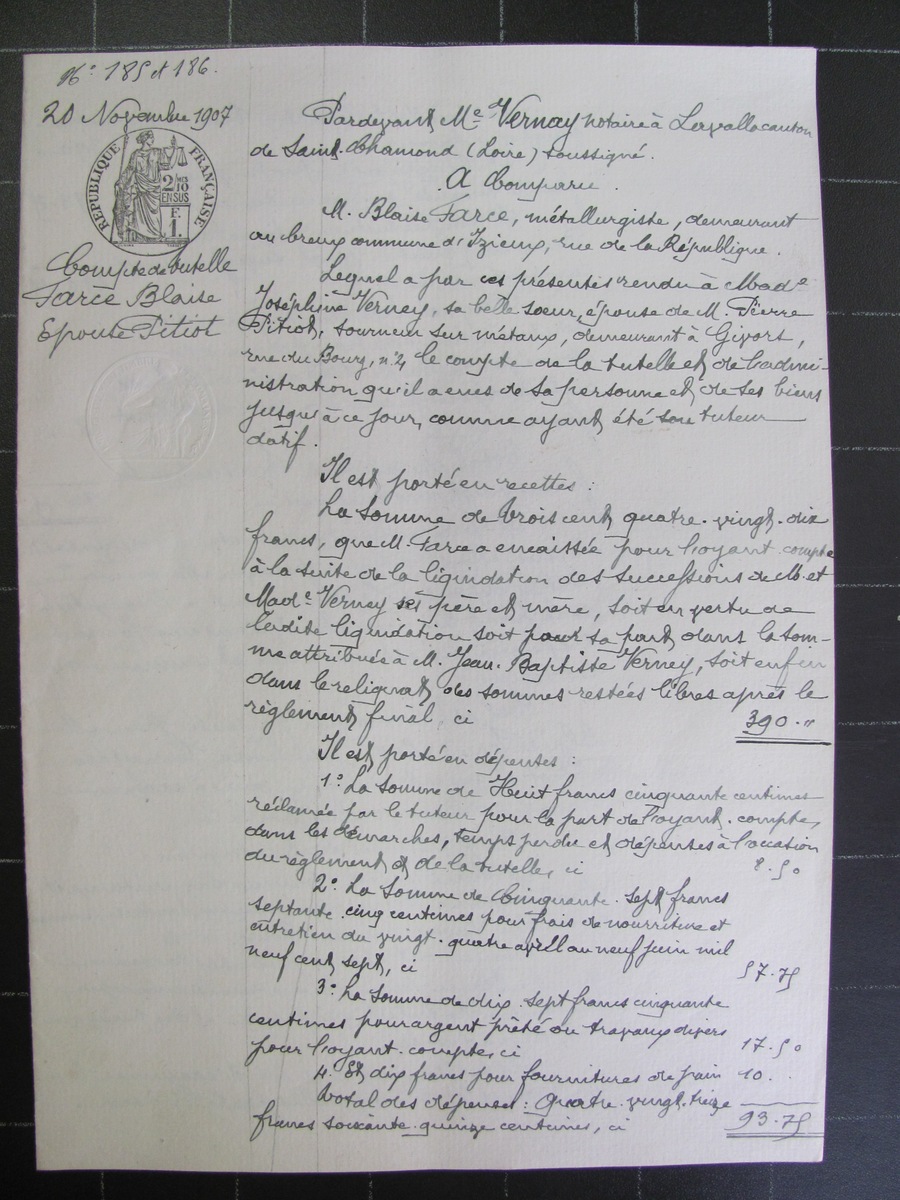 N° 185 et 186.
20 Novembre 1907
RÉPUBLIQUE FRANÇAISE
2/10
EN SUS
F.
1.
Compte de tutelle
Farce Blaise
Epouse Pitiot
Pardevant Me Vernay notaire à canton
de Saint-Chamond (Loire) soussigné.
A Comparu.
M. Blaise Farce, métallurgiste, demeurant
au Creux commune d'Izieux, rue de la République.
Lequel a par ces présentes rendu à Made
Joséphine Verney, sa belle soeur, épouse de M. Pierre
Pitiot, tourneur sur métaux, demeurant à Givors,
rue du Bourg, n° 4, le compte de la tutelle et de l'admi-
nistration qu'il a eues de sa personne et de ses biens
jusqu'à ce jour, comme ayant été son tuteur
datif.
Il est porté en recettes :
La somme de trois cent quatre-vingt-dix
francs, que M. Farce a encaissée pour l'oyant-compte
à la suite de la liquidation des successions de M. et
Made Verney ses père et mère, soit en vertu de
ladite liquidation soit pour sa part dans la som-
me attribuée à M. Jean-Baptiste Verney, soit enfin
dans le reliquat des sommes restées libres après le
règlement final, ci 390 . "
Il est porté en dépenses :
1° La somme de Huit francs cinquante centimes
réclamée par le tuteur pour la part de l'oyant-compte,
dans les démarches, temps perdu et dépenses à l'occasion
du règlement et de la tutelle, ci 8.50
2° La somme de Cinquante-sept francs
septante-cinq centimes pour frais de nourriture et
entretien du vingt-quatre avril au neuf juin mil
neuf cent sept, ci 57.75
3° La somme de dix-sept francs cinquante
centimes pour argent prêté ou travaux divers
pour l'oyant-compte, ci 17.50
4° Et dix francs pour fournitures de pain 10 . .
Total des dépenses : Quatre-vingt-treize
francs soixante-quinze centimes, ci 93.75